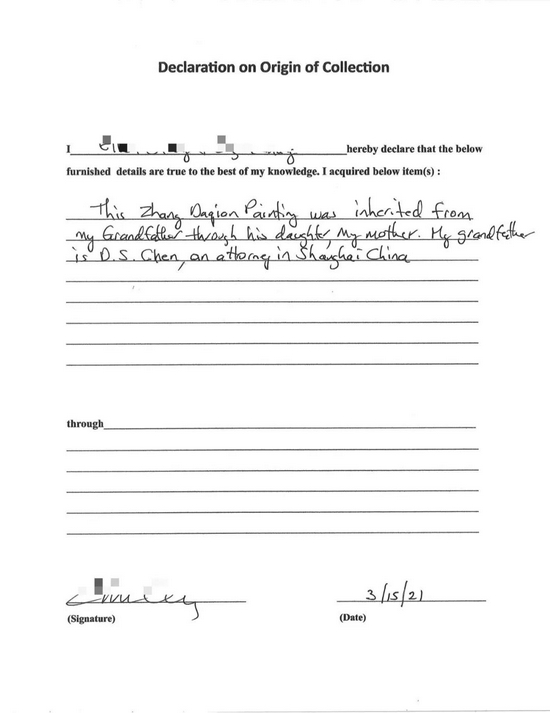 Declaration on Origin of Collection
I hereby declare that the below
furnished details are true to the best of my knowledge. I acquired below item(s) :
This Zhang Daqian Painting was inherited from
my Grandfather through his daughter, my mother. My grandfather
is D.S. Chen, an attorney in Shanghai China
through
3/15/21
(Signature) (Date)